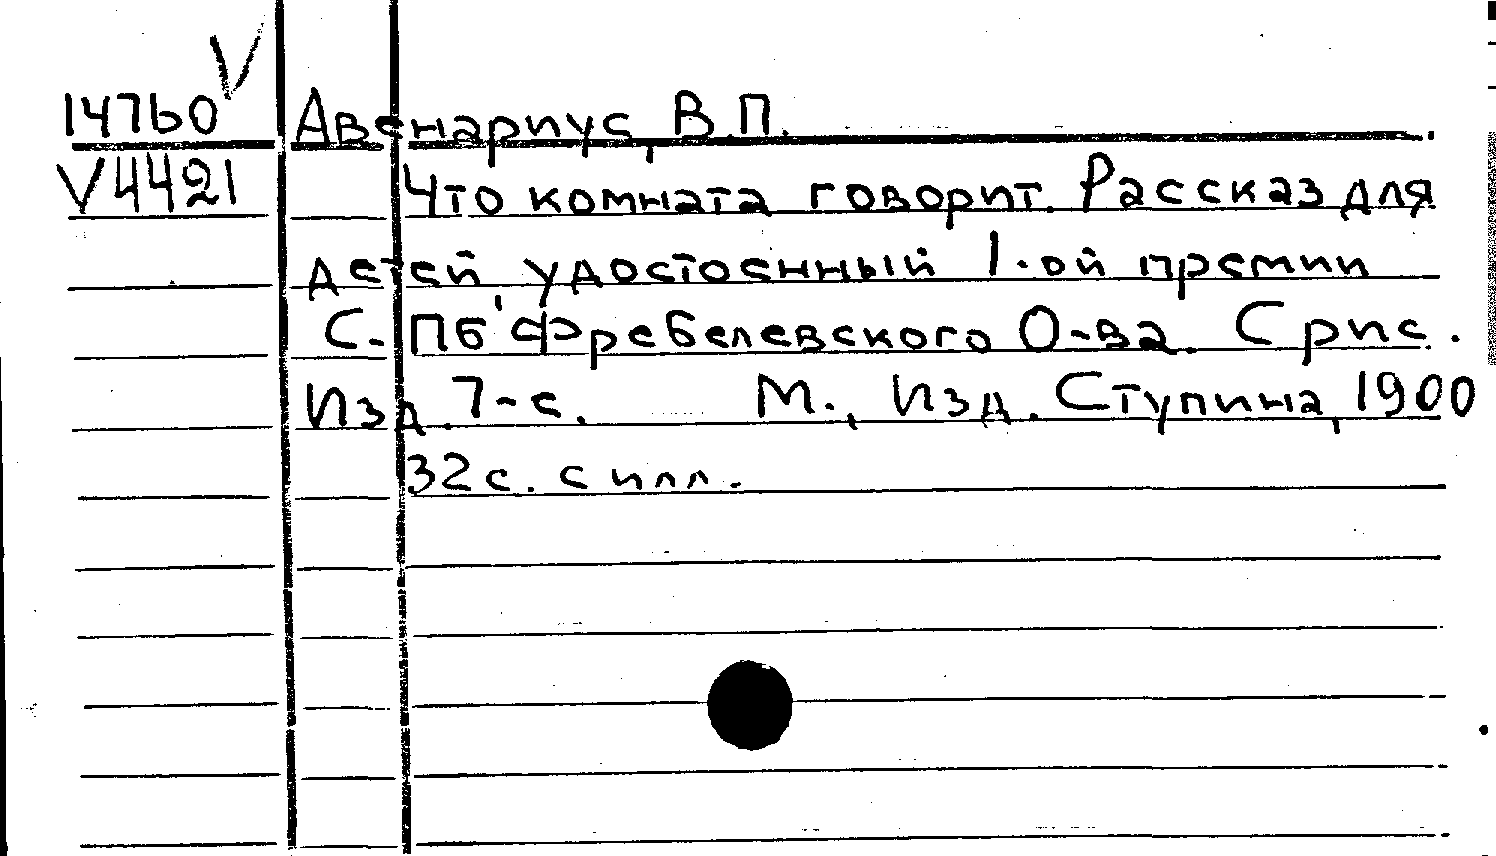 V
14760 Авенариус, В.П.
V4421 Что комната говорит. Рассказ для
детей, удостоенный 1-ой премии
С.-Пб Фребелевского О-ва. С рис.
Изд. 7-е. М., Изд. Ступина, 1900
32 с. с илл.